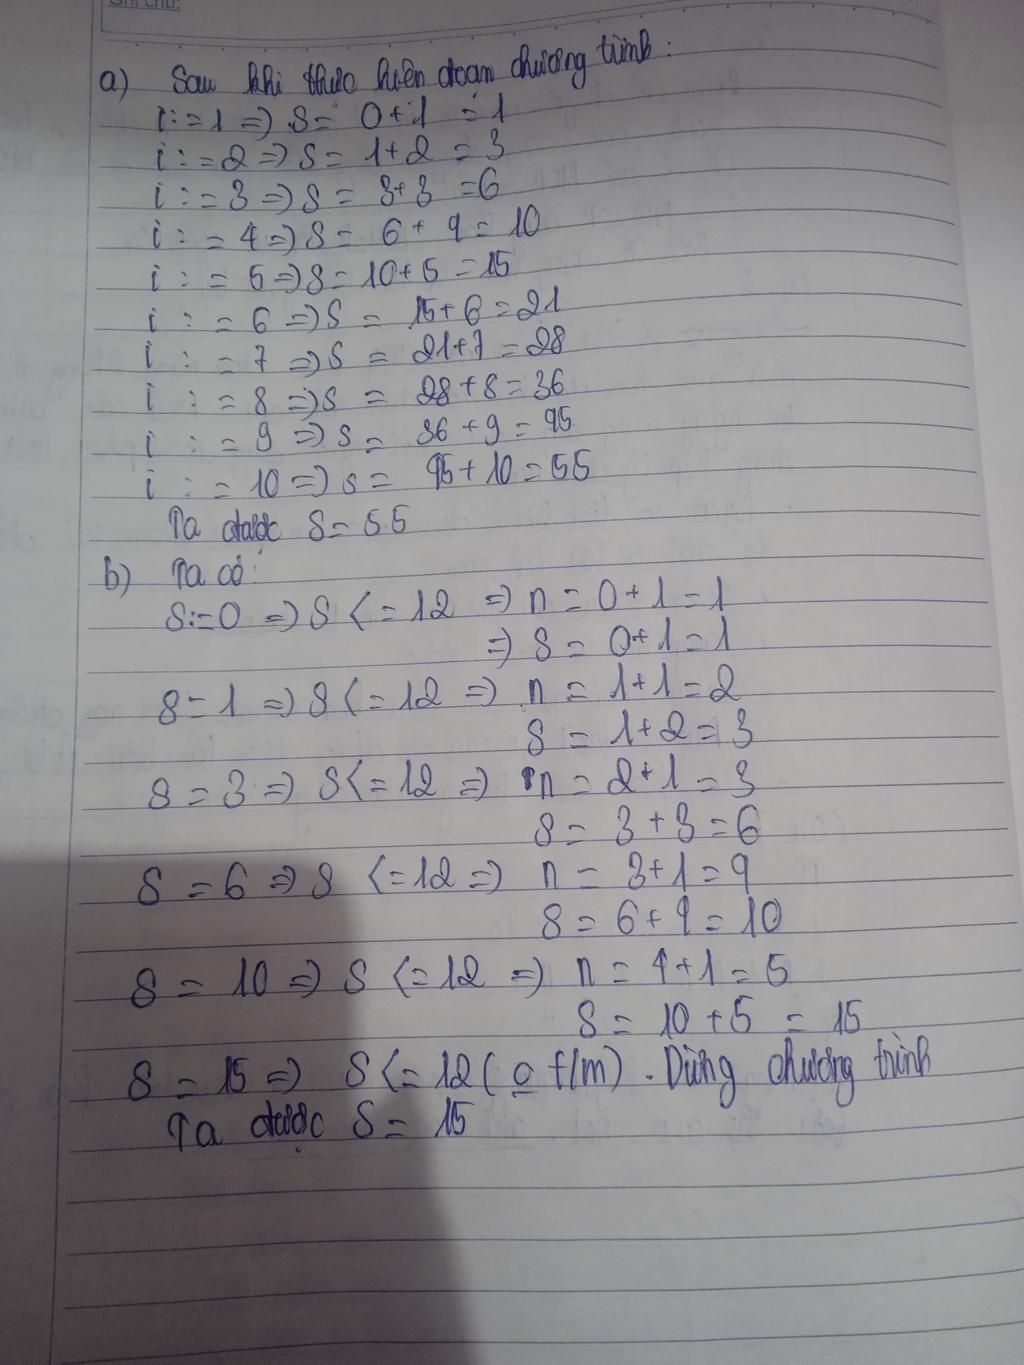 Ghi chú:
a) Sau khi thực hiện đoạn chương trình:
i:=1 => S= 0+1 = 1
i:=2 => S= 1+2 = 3
i:=3 => S= 3+3 =6
i:=4 => S= 6+4=10
i:=5 => S=10+5=15
i:=6 => S = 15+6=21
i:=7 => S = 21+7=28
i:=8 => S = 28+8=36
i:=9 => S = 36+9=45
i:=10 => S = 45+10=55
Ta được S=55
b) Ta có:
S:=0 => S<=12 => n=0+1=1
=> S=0+1=1
S=1 => S<=12 => n=1+1=2
S=1+2=3
S=3 => S<=12 => n=2+1=3
S=3+3=6
S=6 => S<=12 => n=3+1=4
S=6+4=10
S=10 => S<=12 => n=4+1=5
S=10+5=15
S=15 => S<=12 (o t/m). Dừng chương trình
Ta được S=15